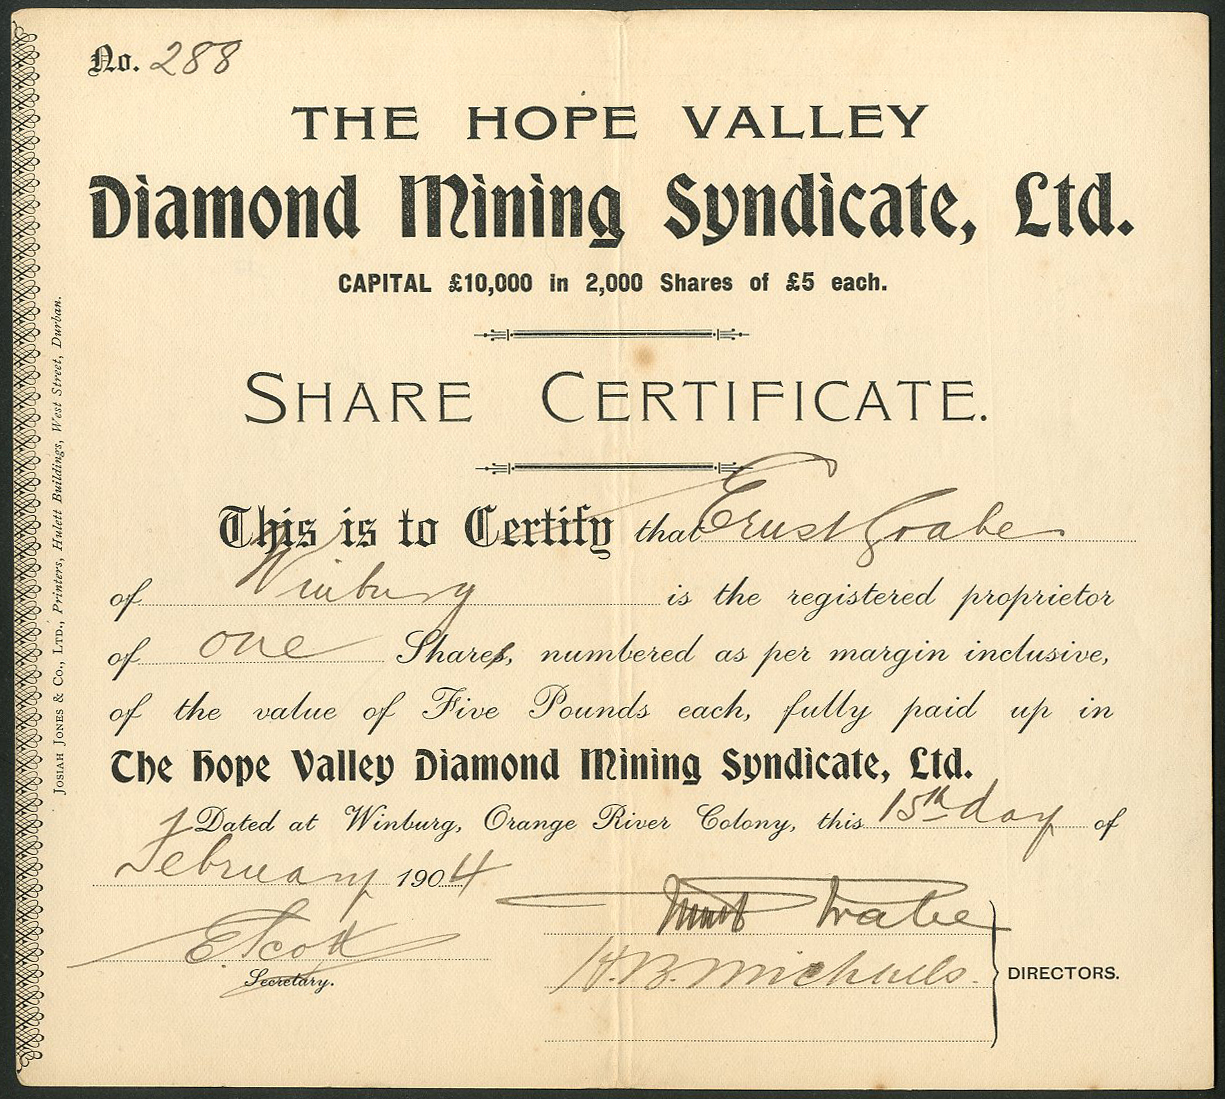 No. 288
THE HOPE VALLEY
Diamond Mining Syndicate, Ltd.
CAPITAL £10,000 in 2,000 Shares of £5 each.
SHARE CERTIFICATE.
This is to Certify that Ernst Grabe
of Winburg is the registered proprietor
of one Shares, numbered as per margin inclusive,
of the value of Five Pounds each, fully paid up in
The Hope Valley Diamond Mining Syndicate, Ltd.
Dated at Winburg, Orange River Colony, this 15th day of
February 1904
Ernst Grabe
E. Scott
H. B. Michaels.
Secretary.
DIRECTORS.
JOSIAH JONES & CO., LTD., Printers, Hulett Buildings, West Street, Durban.